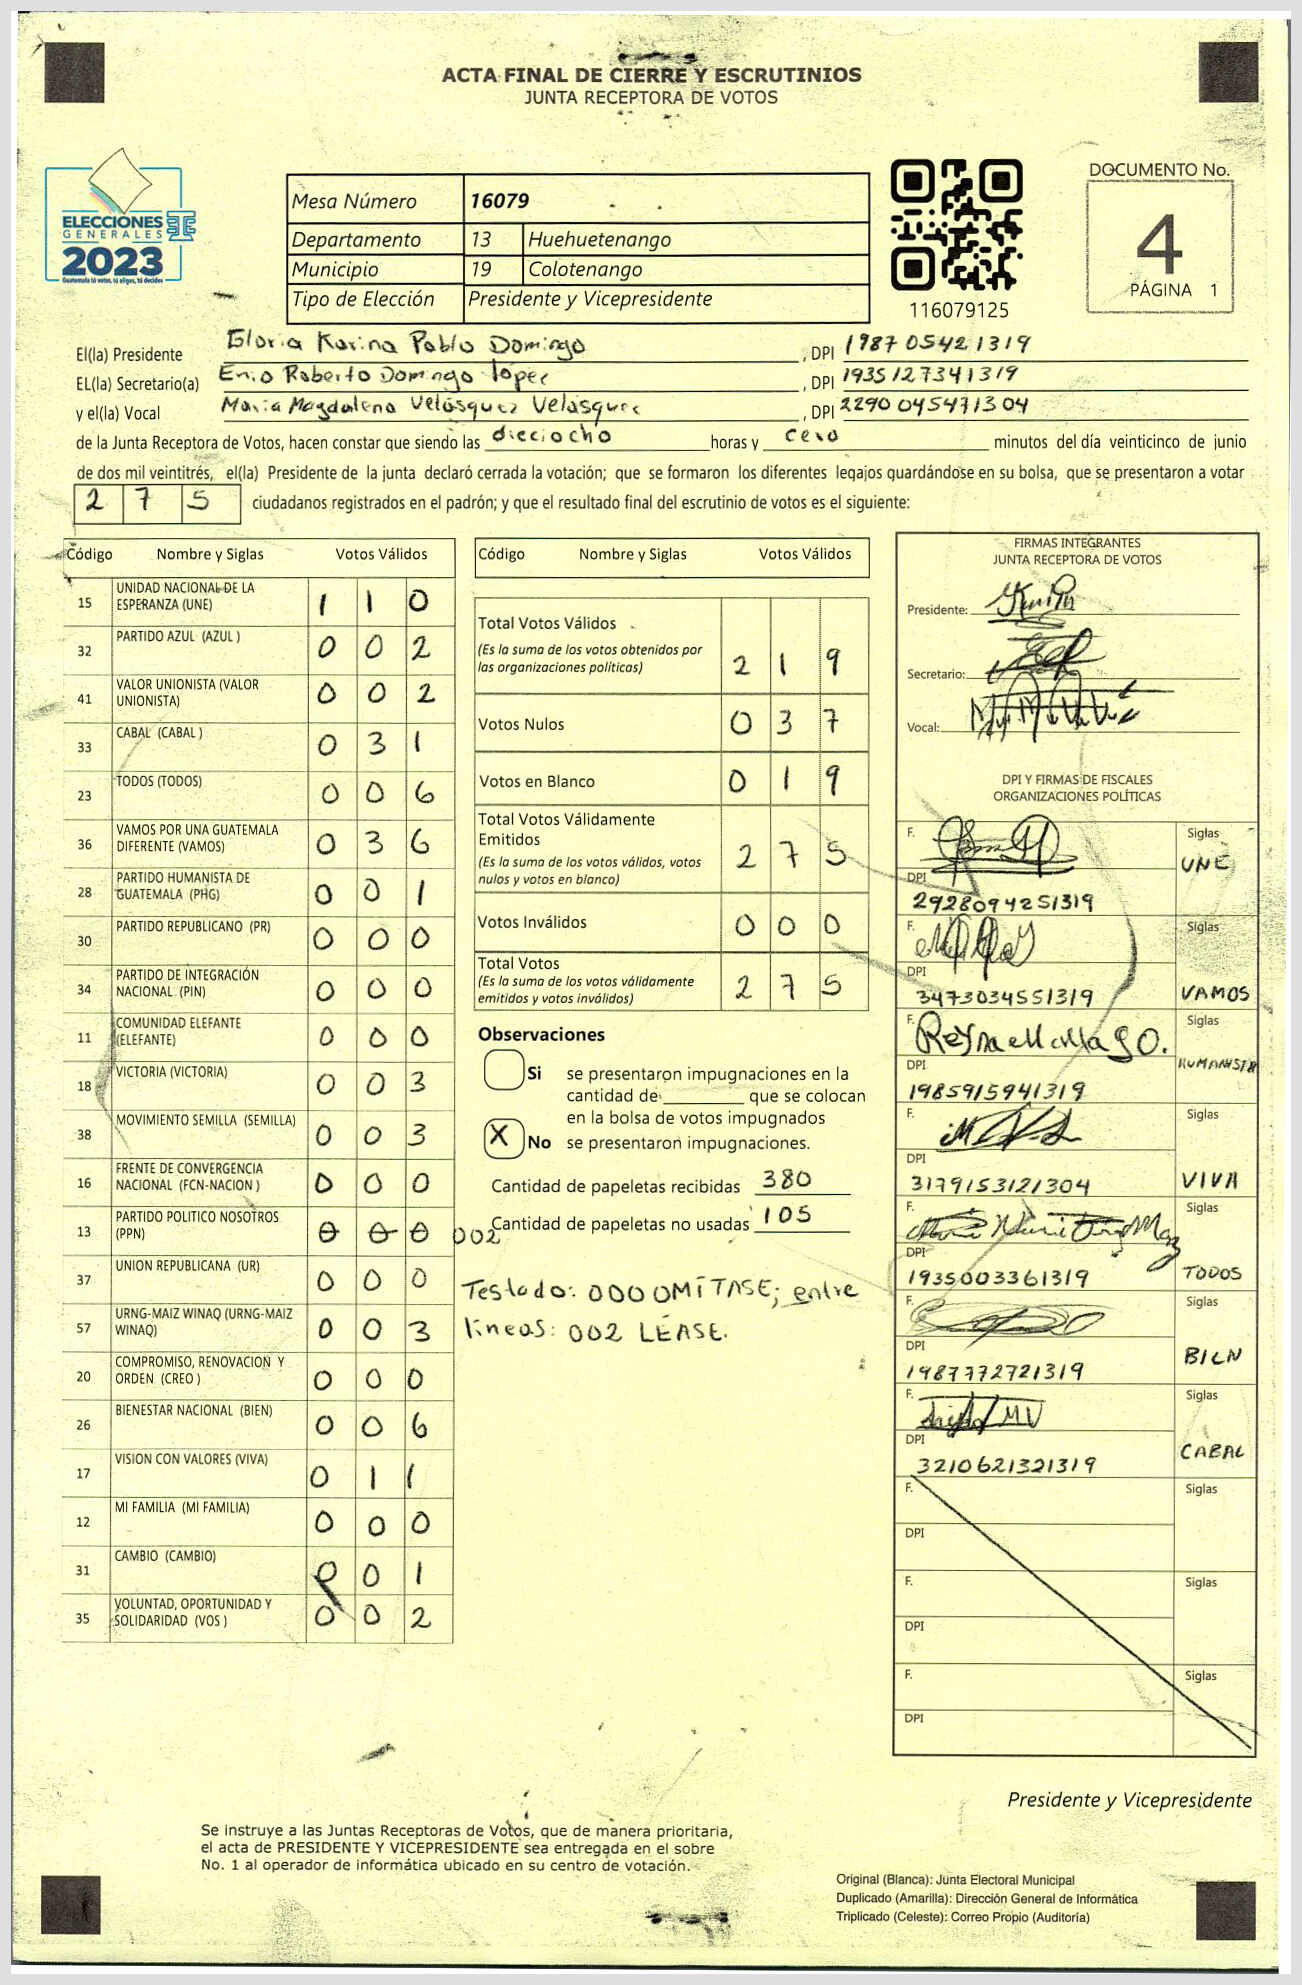 ACTA FINAL DE CIERRE Y ESCRUTINIOS
JUNTA RECEPTORA DE VOTOS
ELECCIONES
GENERALES
2023
Guatemala tú votas, tú eliges, tú decides
Mesa Número 16079
Departamento 13 Huehuetenango
Municipio 19 Colotenango
Tipo de Elección Presidente y Vicepresidente
116079125
DOCUMENTO No.
4
PÁGINA 1
El(la) Presidente Gloria Karina Pablo Domingo, DPI 1987 05421319
EL(la) Secretario(a) Enio Roberto Domingo López, DPI 1935127341319
y el(la) Vocal Maria Magdalena Velásquez Velásquez, DPI 2290045471304
de la Junta Receptora de Votos, hacen constar que siendo las dieciocho horas y cero minutos del día veinticinco de junio
de dos mil veintitrés, el(la) Presidente de la junta declaró cerrada la votación; que se formaron los diferentes legajos guardándose en su bolsa, que se presentaron a votar
2 7 5 ciudadanos registrados en el padrón; y que el resultado final del escrutinio de votos es el siguiente:
Código Nombre y Siglas Votos Válidos
15 UNIDAD NACIONAL DE LA ESPERANZA (UNE) 1 1 0
32 PARTIDO AZUL (AZUL ) 0 0 2
41 VALOR UNIONISTA (VALOR UNIONISTA) 0 0 2
33 CABAL (CABAL ) 0 3 1
23 TODOS (TODOS) 0 0 6
36 VAMOS POR UNA GUATEMALA DIFERENTE (VAMOS) 0 3 6
28 PARTIDO HUMANISTA DE GUATEMALA (PHG) 0 0 1
30 PARTIDO REPUBLICANO (PR) 0 0 0
34 PARTIDO DE INTEGRACIÓN NACIONAL (PIN) 0 0 0
11 COMUNIDAD ELEFANTE (ELEFANTE) 0 0 0
18 VICTORIA (VICTORIA) 0 0 3
38 MOVIMIENTO SEMILLA (SEMILLA) 0 0 3
16 FRENTE DE CONVERGENCIA NACIONAL (FCN-NACION ) 0 0 0
13 PARTIDO POLITICO NOSOTROS (PPN) 0 0 0 002
37 UNION REPUBLICANA (UR) 0 0 0
57 URNG-MAIZ WINAQ (URNG-MAIZ WINAQ) 0 0 3
20 COMPROMISO, RENOVACION Y ORDEN (CREO ) 0 0 0
26 BIENESTAR NACIONAL (BIEN) 0 0 6
17 VISION CON VALORES (VIVA) 0 1 1
12 MI FAMILIA (MI FAMILIA) 0 0 0
31 CAMBIO (CAMBIO) 0 0 1
35 VOLUNTAD, OPORTUNIDAD Y SOLIDARIDAD (VOS ) 0 0 2
Código Nombre y Siglas Votos Válidos
Total Votos Válidos
(Es la suma de los votos obtenidos por
las organizaciones políticas) 2 1 9
Votos Nulos 0 3 7
Votos en Blanco 0 1 9
Total Votos Válidamente
Emitidos
(Es la suma de los votos válidos, votos
nulos y votos en blanco) 2 7 5
Votos Inválidos 0 0 0
Total Votos
(Es la suma de los votos válidamente
emitidos y votos inválidos) 2 7 5
Observaciones
Si se presentaron impugnaciones en la
cantidad de ________ que se colocan
en la bolsa de votos impugnados
X No se presentaron impugnaciones.
Cantidad de papeletas recibidas 380
Cantidad de papeletas no usadas 105
Testado: 000 OMÍTASE; entre
líneas: 002 LÉASE.
FIRMAS INTEGRANTES
JUNTA RECEPTORA DE VOTOS
Presidente:
Secretario:
Vocal:
DPI Y FIRMAS DE FISCALES
ORGANIZACIONES POLÍTICAS
F. Siglas
UNE
DPI
2928094251319
F. Siglas
DPI
3473034551319 VAMOS
F. Siglas
HUMANISTA
DPI
1985915941319
F. Siglas
DPI
3179153121304 VIVA
F. Siglas
DPI
1935003361319 TODOS
F. Siglas
DPI
1987772721319 BIEN
F. Siglas
DPI
3210621321319 CABAL
F. Siglas
DPI
F. Siglas
DPI
F. Siglas
DPI
Presidente y Vicepresidente
Se instruye a las Juntas Receptoras de Votos, que de manera prioritaria,
el acta de PRESIDENTE Y VICEPRESIDENTE sea entregada en el sobre
No. 1 al operador de informática ubicado en su centro de votación.
Original (Blanca): Junta Electoral Municipal
Duplicado (Amarilla): Dirección General de Informática
Triplicado (Celeste): Correo Propio (Auditoría)